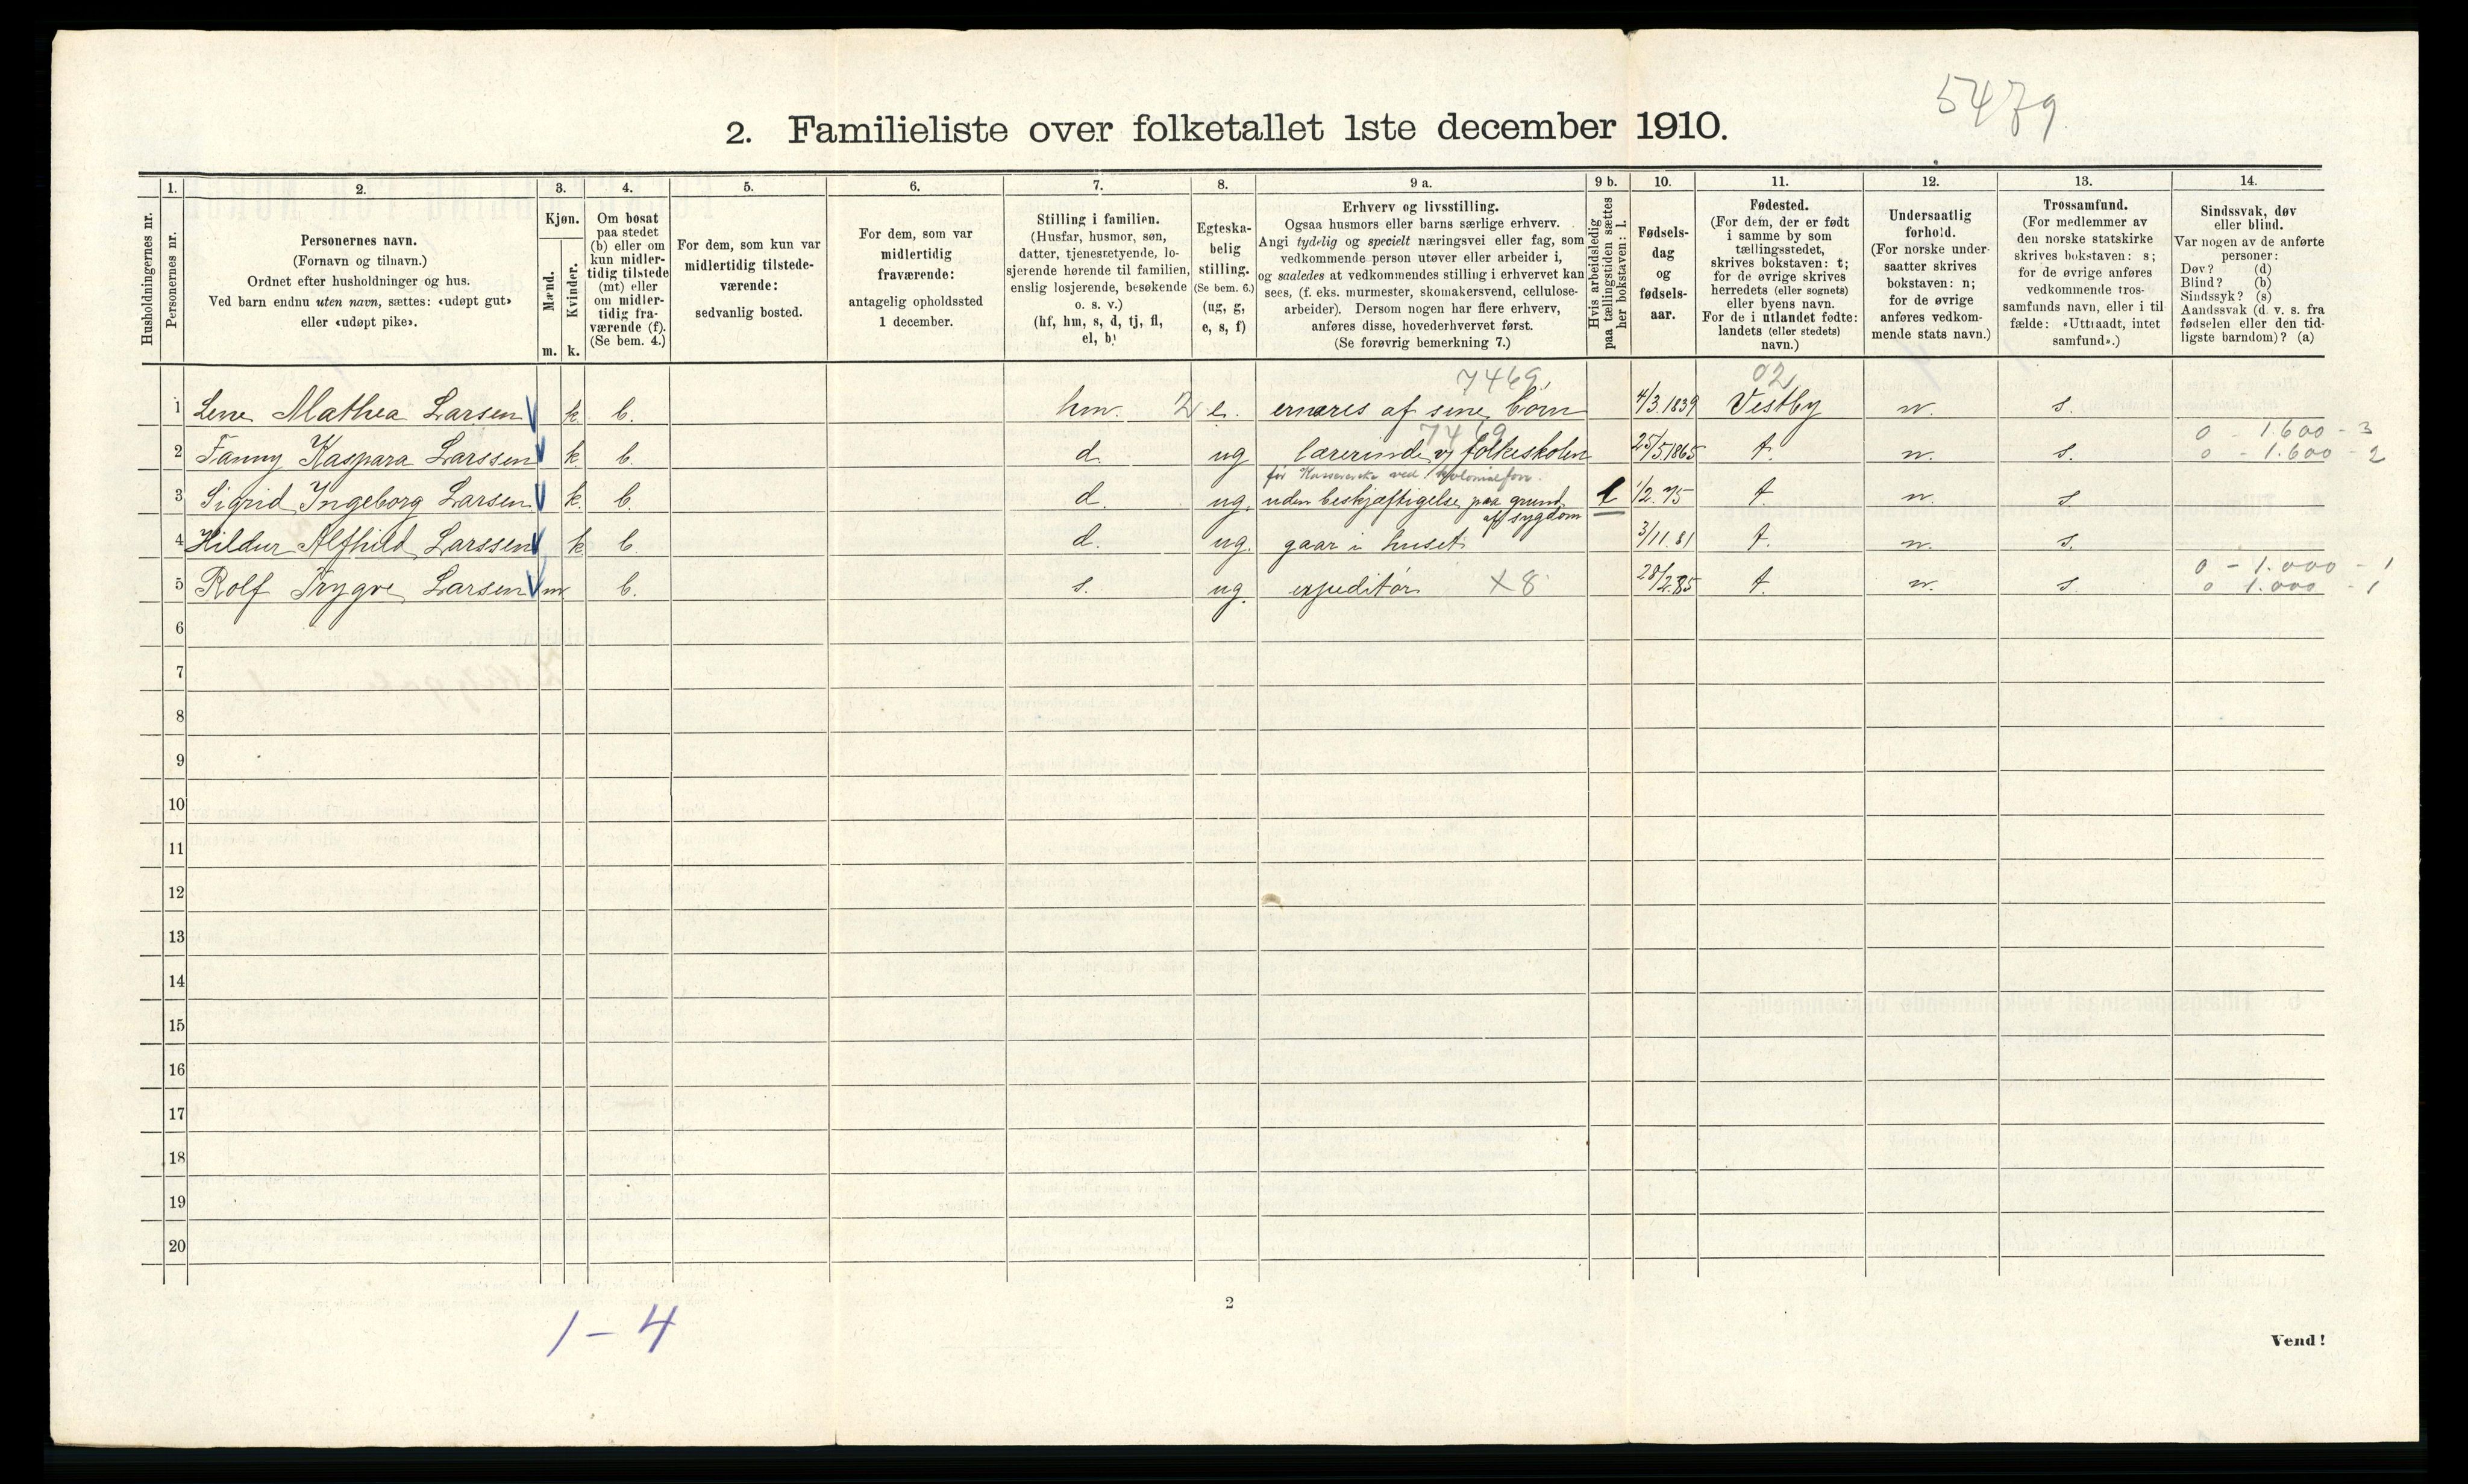 5479
2. Familieliste over folketallet 1ste december 1910.
Husholdningernes nr.
1.
Personernes nr.
2.
Personernes navn.
(Fornavn og tilnavn.)
Ordnet efter husholdninger og hus.
Ved barn endnu uten navn, sættes: «udøpt gut»
eller «udøpt pike».
3.
Kjøn.
Mænd.
Kvinder.
m. k.
4.
Om bosat
paa stedet
(b) eller om
kun midler-
tidig tilstede
(mt) eller
om midler-
tidig fra-
værende (f).
(Se bem. 4.)
5.
For dem, som kun var
midlertidig tilstede-
værende:
sedvanlig bosted.
6.
For dem, som var
midlertidig
fraværende:
antagelig opholdssted
1 december.
7.
Stilling i familien.
(Husfar, husmor, søn,
datter, tjenestetyende, lo-
sjerende hørende til familien,
enslig losjerende, besøkende
o. s. v.)
(hf, hm, s, d, tj, fl,
el, b)
8.
Egteska-
belig
stilling.
(Se bem. 6.)
(ug, g,
e, s, f)
9 a.
Erhverv og livsstilling.
Ogsaa husmors eller barns særlige erhverv.
Angi tydelig og specielt næringsvei eller fag, som
vedkommende person utøver eller arbeider i,
og saaledes at vedkommendes stilling i erhvervet kan
sees, (f. eks. murmester, skomakersvend, cellulose-
arbeider). Dersom nogen har flere erhverv,
anføres disse, hovederhvervet først.
(Se forøvrig bemerkning 7.)
9 b.
Hvis arbeidsledig
paa tællingstiden sættes
her bokstaven: l.
10.
Fødsels-
dag
og
fødsels-
aar.
11.
Fødested.
(For dem, der er født
i samme by som
tællingsstedet,
skrives bokstaven: t;
for de øvrige skrives
herredets (eller sognets)
eller byens navn.
For de i utlandet fødte:
landets (eller stedets)
navn.)
12.
Undersaatlig
forhold.
(For norske under-
saatter skrives
bokstaven: n;
for de øvrige
anføres vedkom-
mende stats navn.)
13.
Trossamfund.
(For medlemmer av
den norske statskirke
skrives bokstaven: s;
for de øvrige anføres
vedkommende tros-
samfunds navn, eller i til-
fælde: «Uttraadt, intet
samfund».)
14.
Sindssvak, døv
eller blind.
Var nogen av de anførte
personer:
Døv? (d)
Blind? (b)
Sindssyk? (s)
Aandssvak (d. v. s. fra
fødselen eller den tid-
ligste barndom)? (a)
7469 02
1 Lene Mathea Larsen k. b. hm. 2 e. ernæres af sine børn 4/3.1839 Vestby n. s.
7469 0 - 1.600 - 3
2 Fanny Kaspara Larssen k. b. d. ug lærerinde v/ folkeskolen 25/5.1865 t. n. s. 0 - 1.600 - 2
før Kassererske ved
3 Sigrid Ingeborg Larsen k. b. d. ug. uden beskjæftigelse paa grund l 1/2.75 t. n. s
af sygdom
4 Hildur Alfhild Larssen k b. d. ug. gaar i huset. 3/11.81 t. n. s.
0 - 1.000 - 1
5 Rolf Trygve Larsen m b. s. ug. expeditør X8 28/2.85 t. n. s. 0 1.000 - 1
6
7
8
9
10
11
12
13
14
15
16
17
18
19
20
2
1 - 4
Vend!